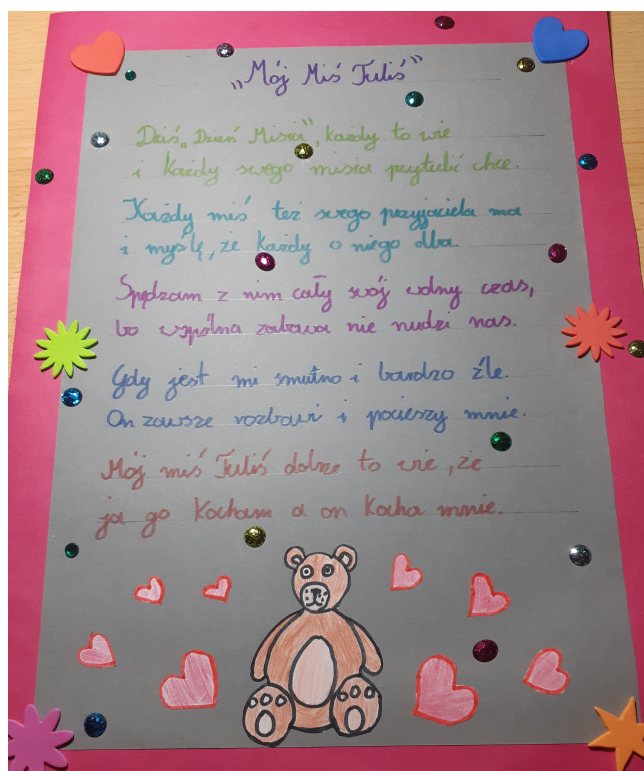 „Mój Miś Tuliś"
Dziś „Dzień Misia", każdy to wie
i każdy swego misia przytulić chce.
Każdy miś też swego przyjaciela ma
i myślę, że każdy o niego dba.
Spędzam z nim cały swój wolny czas,
bo wspólna zabawa nie nudzi nas.
Gdy jest mi smutno i bardzo źle.
On zawsze rozbawi i pocieszy mnie.
Mój miś Tuliś dobrze to wie, że
ja go kocham a on kocha mnie.